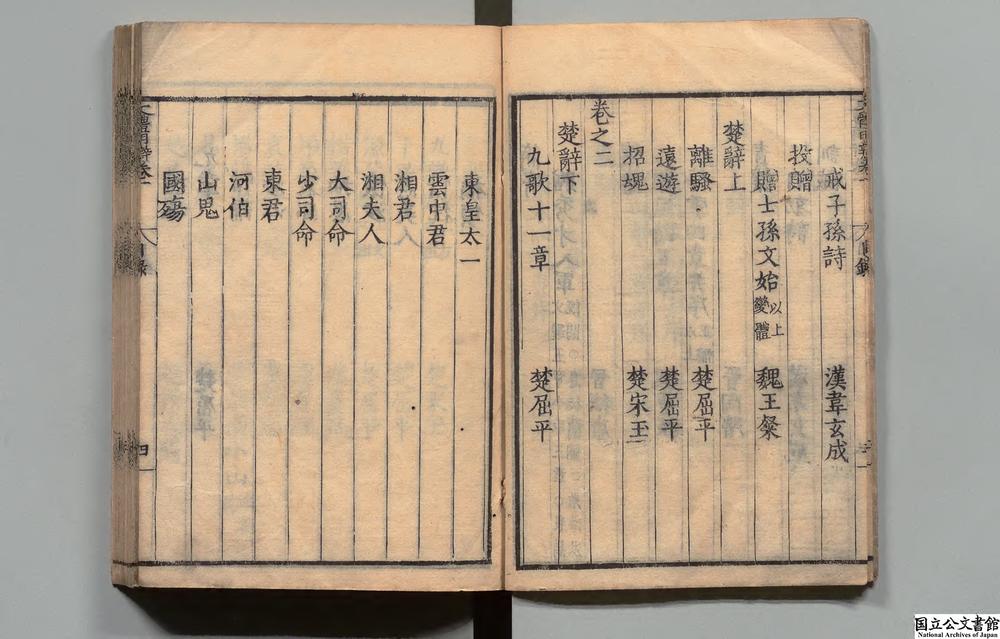 戒子孫詩 漢韋玄成
投贈
贈士孫文始以上變體 魏王粲
楚辭上
離騷 楚屈平
遠遊 楚屈平
招魂 楚宋玉
卷之二
楚辭下
九歌十一章 楚屈平
東皇太一
雲中君
湘君
湘夫人
大司命
少司命
東君
河伯
山鬼
國殤
文體明辯卷一
目錄
四
国立公文書館
National Archives of Japan